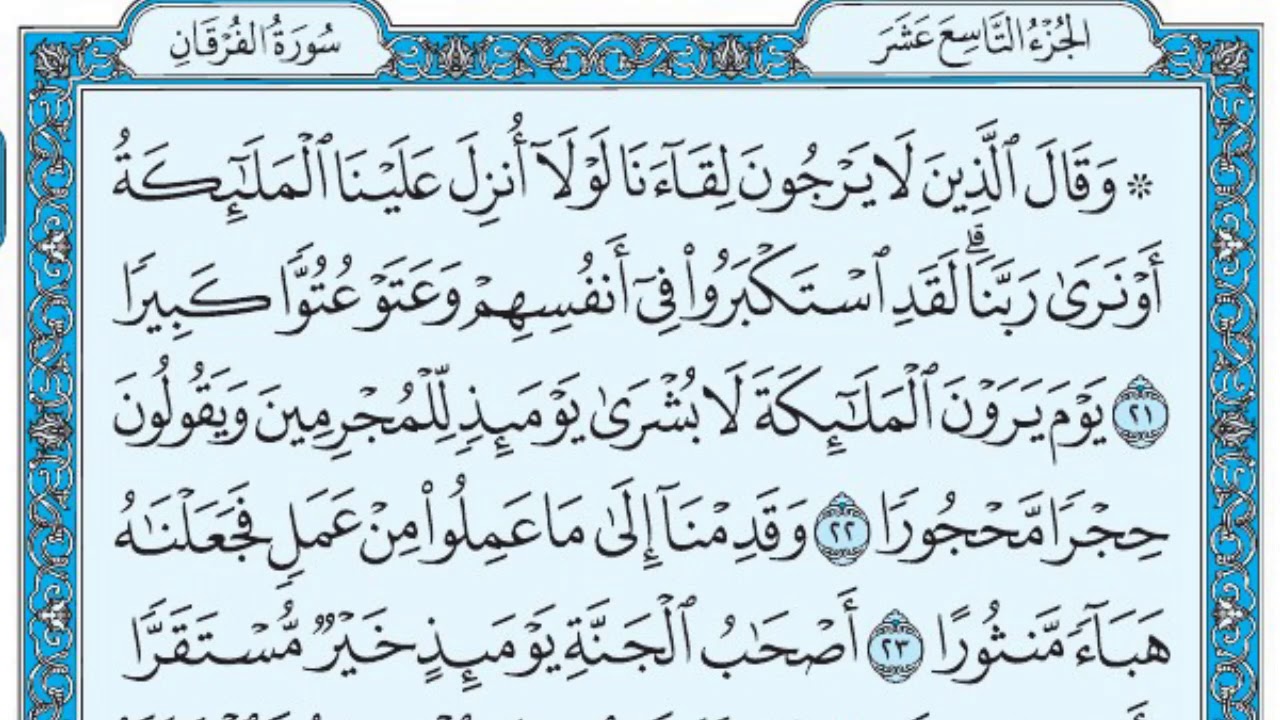 الجُزْءُ التَّاسِعَ عَشَرَ
سُورَةُ الفُرْقَانِ
۞ وَقَالَ ٱلَّذِينَ لَا يَرْجُونَ لِقَآءَنَا لَوْلَآ أُنزِلَ عَلَيْنَا ٱلْمَلَٰٓئِكَةُ
أَوْ نَرَىٰ رَبَّنَا ۗ لَقَدِ ٱسْتَكْبَرُوا۟ فِىٓ أَنفُسِهِمْ وَعَتَوْ عُتُوًّا كَبِيرًا
٢١ يَوْمَ يَرَوْنَ ٱلْمَلَٰٓئِكَةَ لَا بُشْرَىٰ يَوْمَئِذٍ لِّلْمُجْرِمِينَ وَيَقُولُونَ
حِجْرًا مَّحْجُورًا ٢٢ وَقَدِمْنَآ إِلَىٰ مَا عَمِلُوا۟ مِنْ عَمَلٍ فَجَعَلْنَٰهُ
هَبَآءً مَّنثُورًا ٢٣ أَصْحَٰبُ ٱلْجَنَّةِ يَوْمَئِذٍ خَيْرٌ مُّسْتَقَرًّا